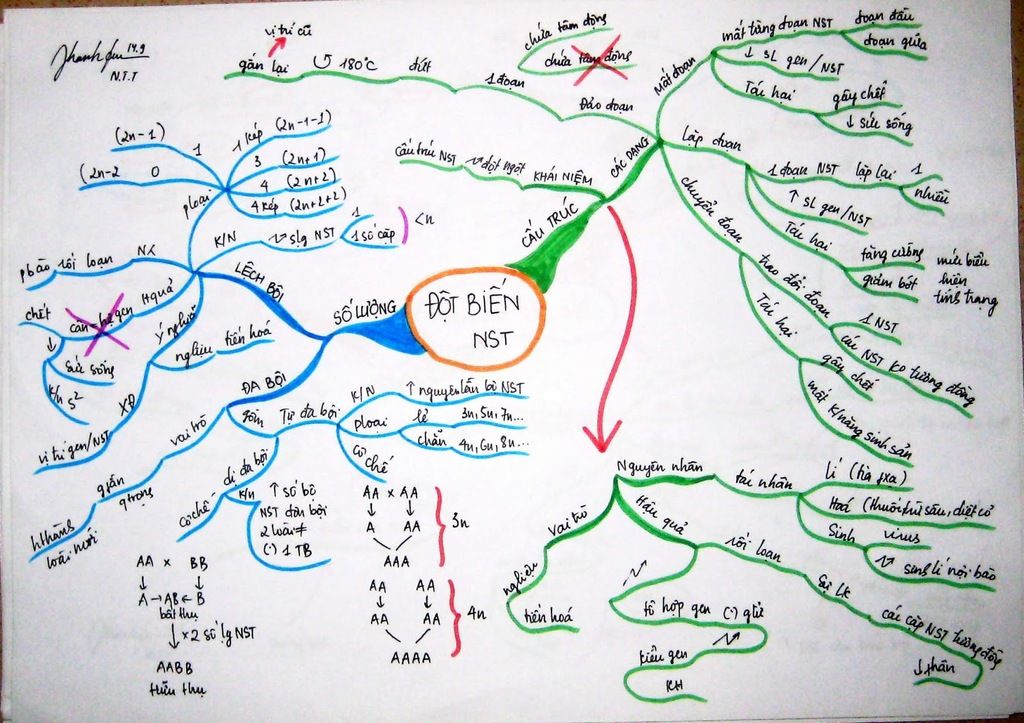 14.9
N.T.T
ĐỘT BIẾN
NST
CẤU TRÚC
KHÁI NIỆM
cấu trúc NST
đột ngột
CÁC DẠNG
Mất đoạn
mất từng đoạn NST
đoạn đầu
đoạn giữa
↓ SL gen/NST
Tác hại
gây chết
↓ sức sống
Lặp đoạn
1 đoạn NST lặp lại
1
nhiều
↑ SL gen/NST
Tác hại
tăng cường
giảm bớt
mức biểu
hiện
tính trạng
chuyển đoạn
trao đổi đoạn
1 NST
các NST ko tương đồng
Tác hại
gây chết
mất k/năng sinh sản
Đảo đoạn
1 đoạn
chứa tâm động
chứa tâm động
đứt
180°C
gắn lại
vị trí cũ
Nguyên nhân
tác nhân
Lí (tia fxạ)
Hoá (thuốc trừ sâu, diệt cỏ
Sinh
virus
sinh lí nội bào
Hậu quả
rối loạn
sự LK
các cặp NST tương đồng
↓ phân
tổ hợp gen (·) gtử
kiểu gen
KH
Vai trò
nghiên
tiến hoá
SỐ LƯỢNG
LỆCH BỘI
ploại
1
(2n-1)
0
(2n-2
1 kép (2n-1-1)
3 (2n+1)
4 (2n+2)
4 kép (2n+2+2)
K/N
slg NST
1
1 số cặp
<n
NN
pbào rối loạn
Hquả
cân = hệ gen
chết
↓
sức sống
k/n s²
ý nghĩa
nghiệu
tiến hoá
XĐ
vị trí gen/NST
ĐA BỘI
gồm
Tự đa bội
K/N
↑ nguyên lần bộ NST
ploại
lẻ
3n, 5n, 7n...
chẵn
4n, 6n, 8n...
cơ chế
dị đa bội
K/n
↑ số bộ
NST đơn bội
2 loài ≠
(·) 1 TB
cơ chế
vai trò
qtrọng
hthành
loài mới
AA × AA
A AA
AAA
3n
AA AA
AA AA
AAAA
4n
AA × BB
A → AB ← B
bất thụ
×2 số lg NST
AABB
hữu thụ